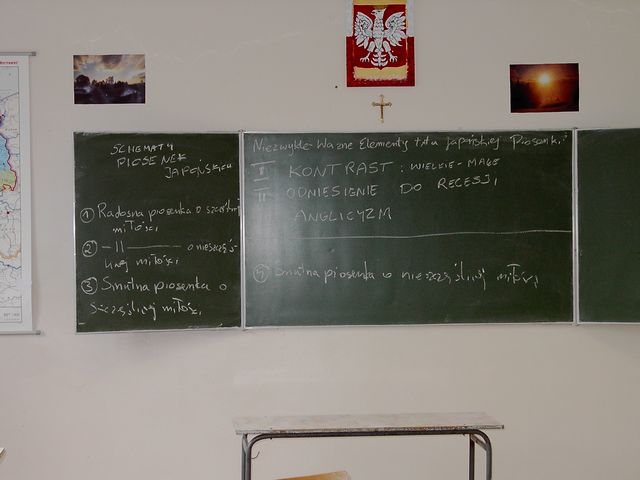 SCHEMATY
PIOSENEK
JAPOŃSKICH
① Radosna piosenka o szczęśliwej
miłości
② — 11 ——— o nieszczęś-
liwej miłości
③ Smutna piosenka o
szczęśliwej miłości
Niezwykle Ważne Elementy tytułu Japońskiej Piosenki:
I KONTRAST: WIELKIE - MAŁE
II ODNIESIENIE DO RECESJI
ANGLICYZM
④ Smutna piosenka o nieszczęśliwej miłości